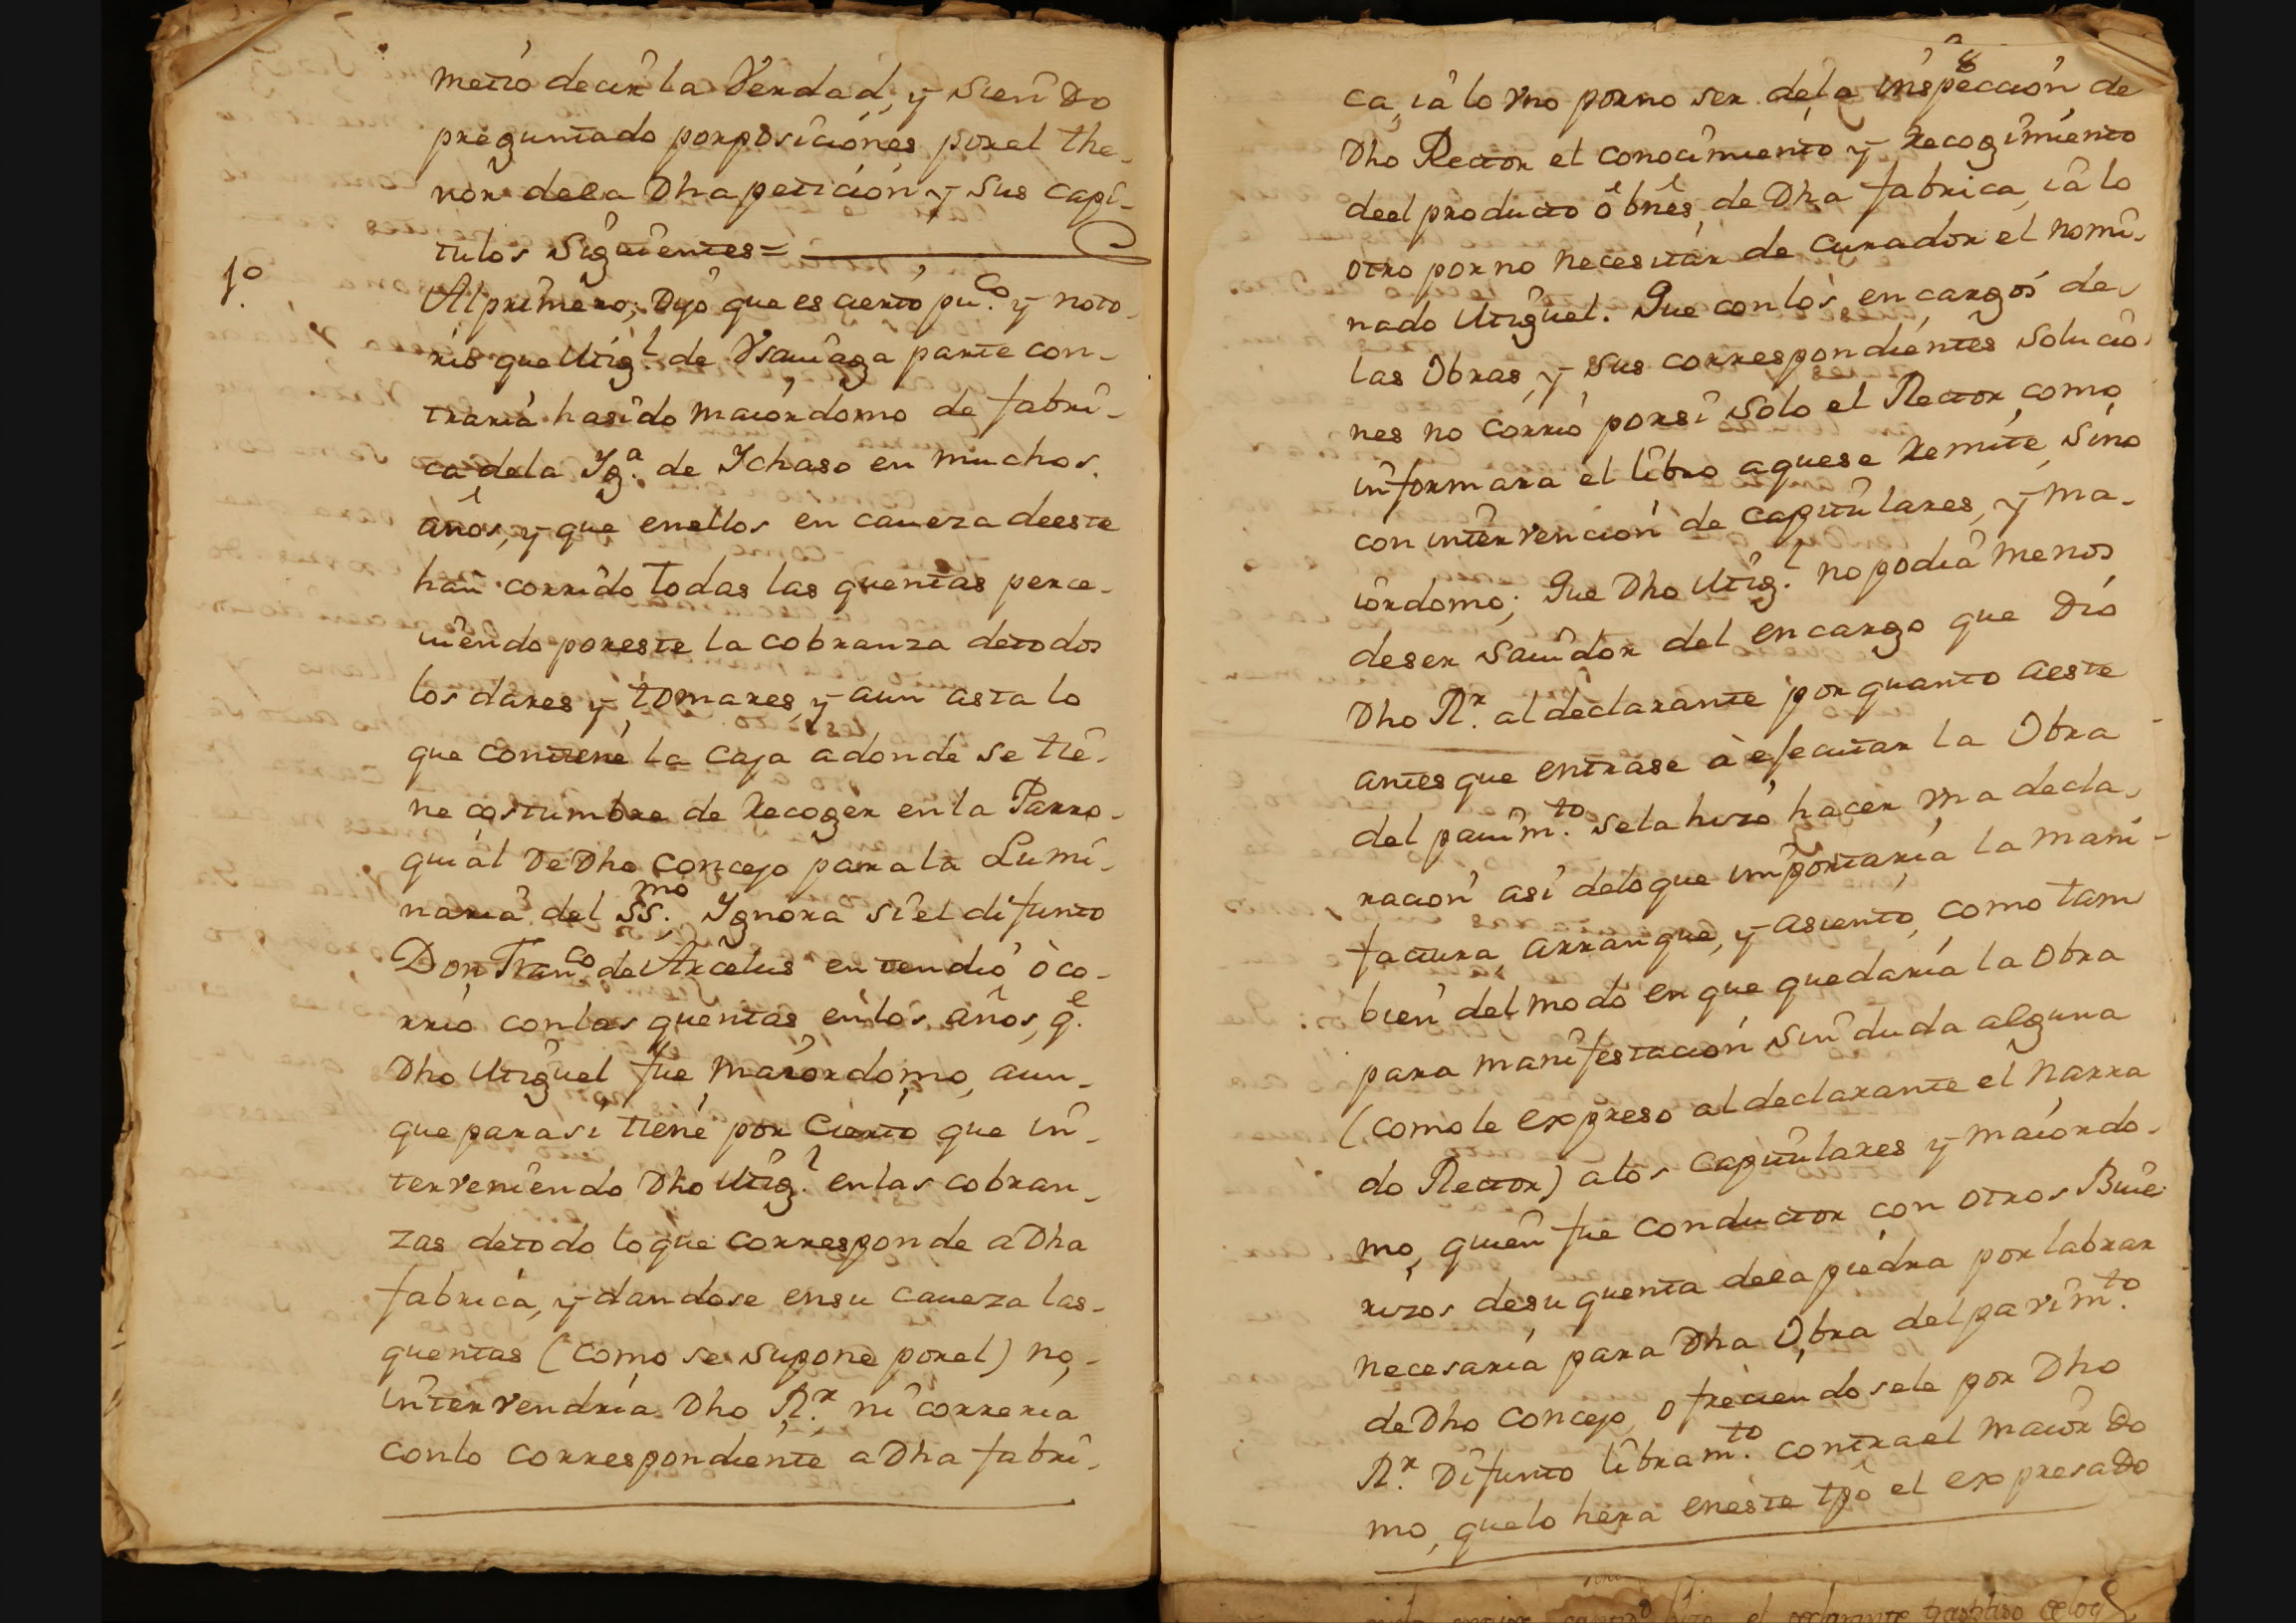 metio decir la Verdad, y Siendo
preguntado por posiciones por el the-
nor dela Dha peticion y sus capi-
tulos Siguientes=
1º
Al primero; Dijo que es cierto pu.co y noto-
rio que Mig.l de Vsauiaga parte con-
traria ha sido maiordomo de fabri-
ca dela Yg.a de Ychaso en muchos
años, y que enellos en caueza deeste
han corrido todas las quentas perce-
uiendo poreste la cobranza detodos
los dares y tomares, y aun asta lo
que contiene la caja adonde se tie-
ne costumbre de Recoger en la Parro-
quial De Dho Concejo parala Lumi-
naria del SS.mo Ygnora si el difunto
Don Fran.co de Arcelus entendio ò co-
rrio con las quentas en los años, q.e
Dho Miguel fue Maiordomo, aun-
que parasi tiene por Cierto que in-
terveniendo Dho Mig.l enlas cobran-
zas detodo loque corresponde a Dha
fabrica, y dandose ensu caueza las-
quentas (como se supone porel) no-
intervendria Dho R.r ni correria
conlo correspondiente a Dha fabri-
8
ca, iâ lo vno porno ser dela inspeccion de
Dho Rector el conocimiento y Recogimiento
deel producto ô bnes de Dha fabrica, iâ lo
otro por no necesitar de curador el nomi-
nado Miguel. Que con los encargos de
las Obras, y sus correspondientes Solucio-
nes no corrio porsi solo el Rector como
informara el libro aquese Remite, Sino
con intervencion de capitulares, y ma-
iordomo; Que Dho Mig.l no podia menos
deser sauidor del encargo que Dio
Dho R.r al declarante por quanto aeste
antes que entrase â efecutar la Obra
del pauim.to sela hizo hacer vna decla-
racion asi deloque importaria la mani-
factura, arranque, y asiento, como tam
bien del modo en que quedaria la Obra
para manifestacion sin duda alguna
(como le expreso al declarante el Narra
do Rector) alos capitulares y maiordo-
mo, quien fue conductor con otros Buie-
rizos desu quenta dela piedra por labrar
necesaria para Dha Obra del pavim.to
de Dho Concejo, ofreciendosele por Dho
R.r Difunto libram.to contra el maiordo
mo, quelo hera eneste tpô el expresado